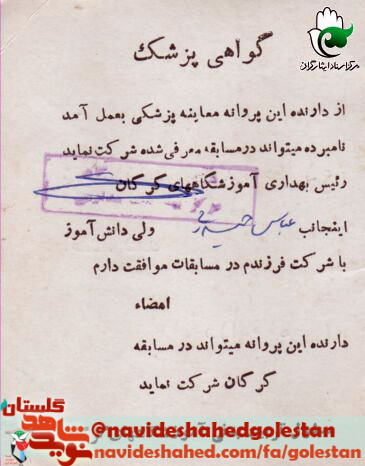 مرکز اسناد ایثارگران
گواهی پزشک
از دارنده این پروانه معاینه پزشکی بعمل آمد
نامبرده میتواند در مسابقه معرفی شده شرکت نماید
رئیس بهداری آموزشگاههای گرگان
اینجانب عباس ولی دانش آموز
با شرکت فرزندم در مسابقات موافقت دارم
امضاء
دارنده این پروانه میتواند در مسابقه
گرگان شرکت نماید
نوید شاهد گلستان
@navideshahedgolestan
navideshahed.com/fa/golestan